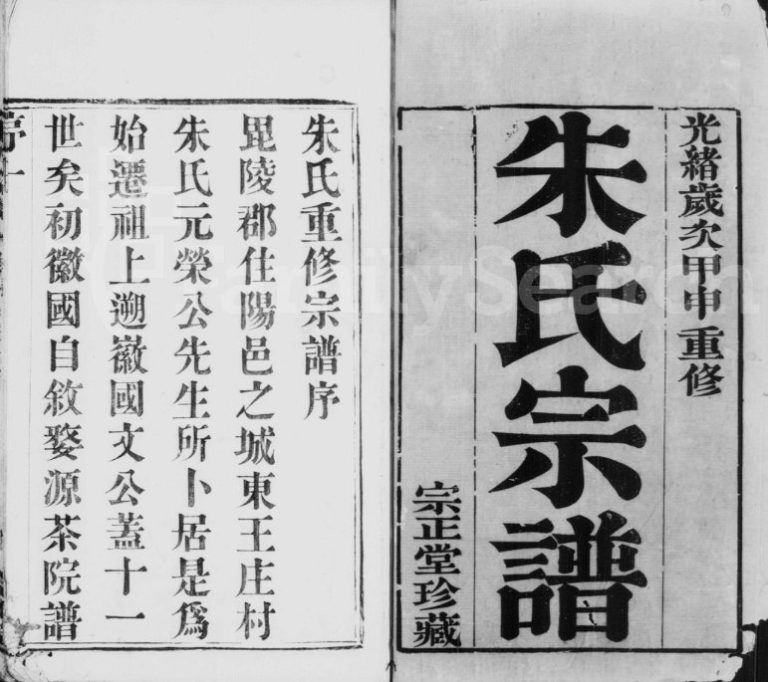 光緒歲次甲申重修
朱氏宗譜
宗正堂珍藏
朱氏重修宗譜序
毘陵郡住陽邑之城東王庄村
朱氏元榮公先生所卜居是爲
始遷祖上遡徽國文公蓋十一
世矣初徽國自敘婺源茶院譜
序一
FamilySearch